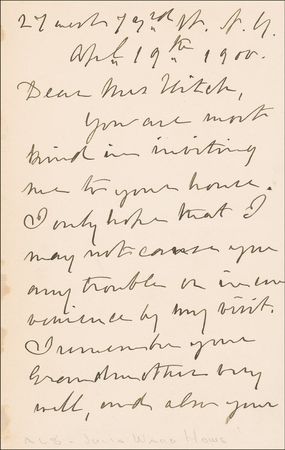 27 west 73rd St. N. Y.
April 19th 1900.
Dear Mrs Hitch,
You are most
kind in inviting
me to your house.
I only hope that I
may not cause you
any trouble or incon
venience by my visit.
I remember your
Grandmother very
well, and also your
ALS - Julia Ward Howe